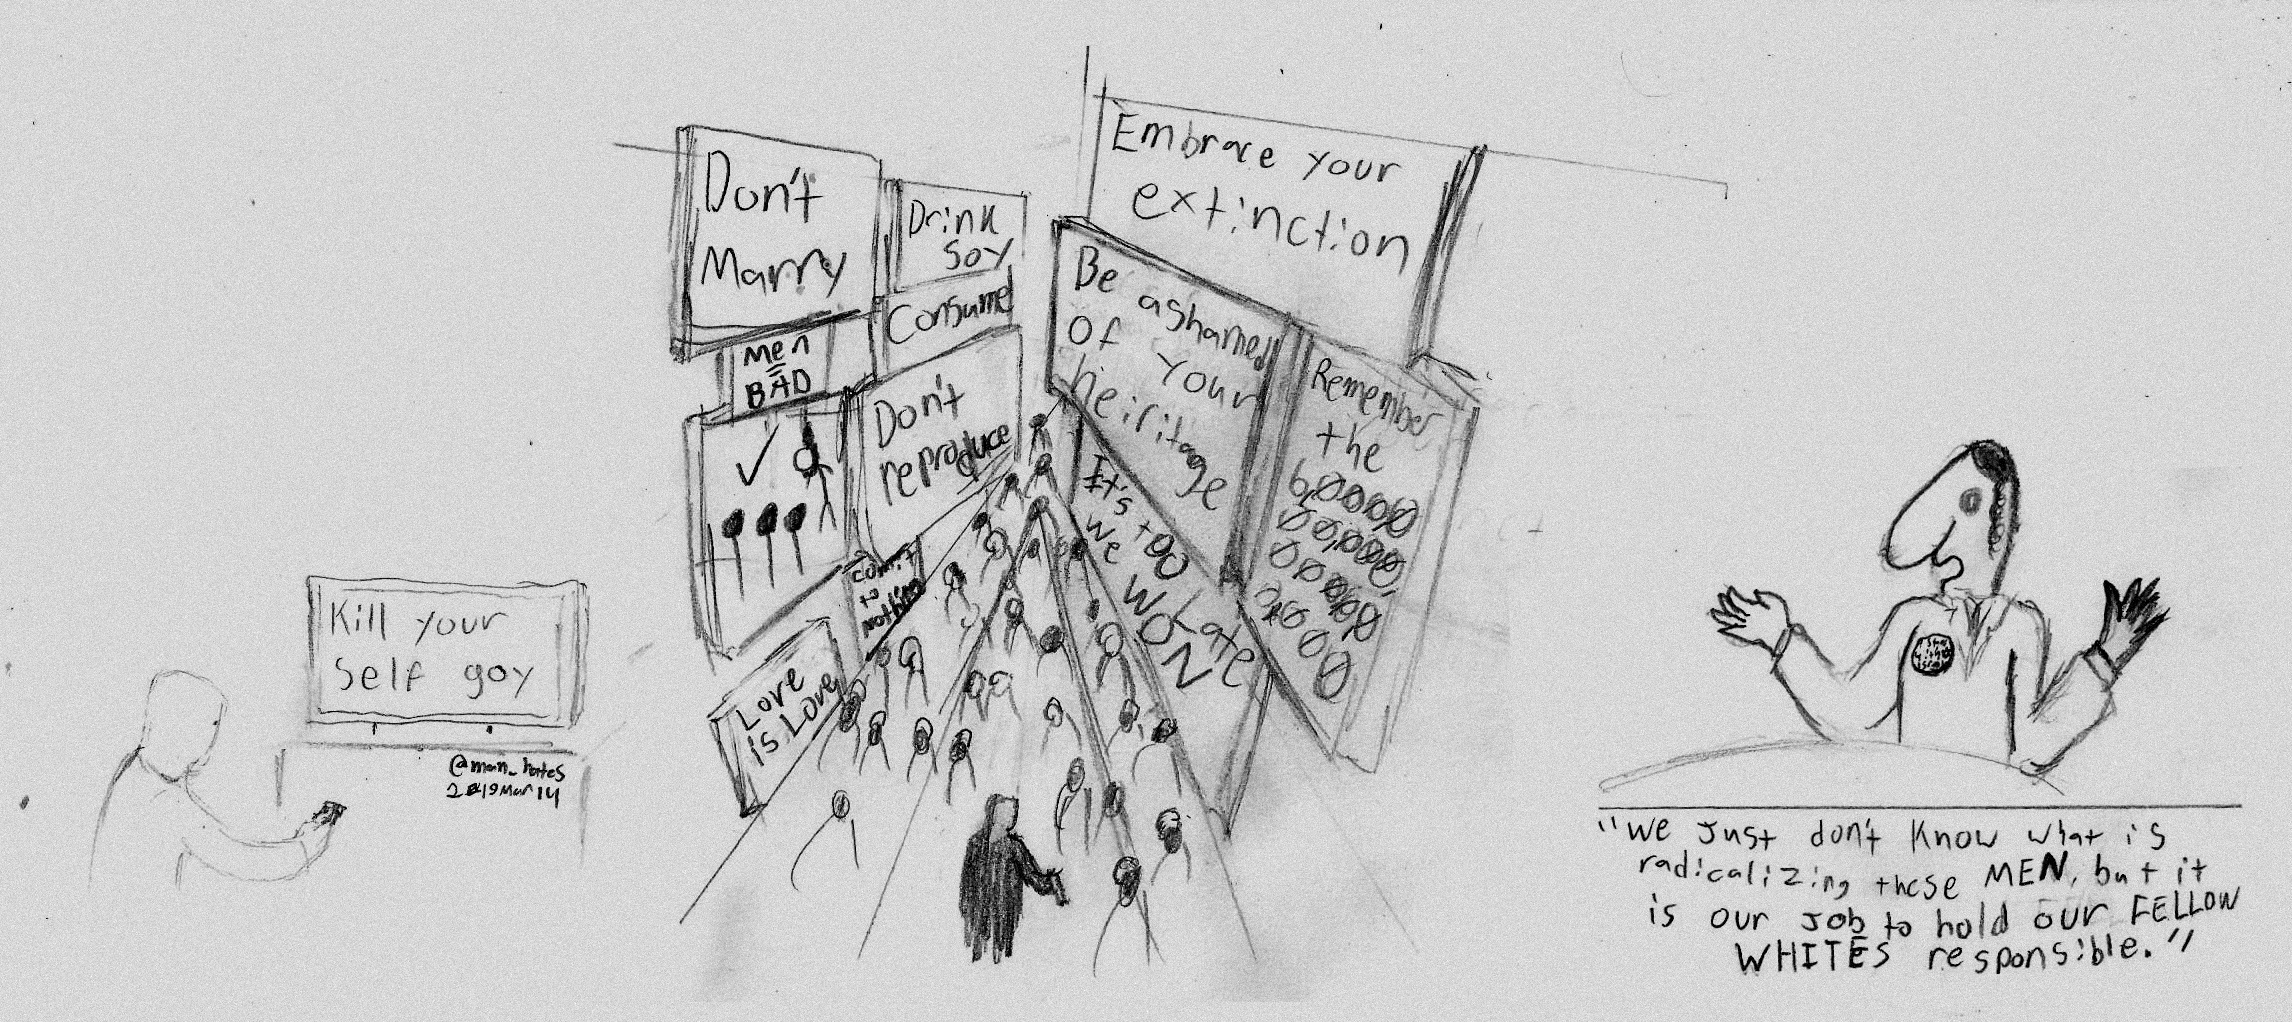 Kill your
self goy
@man_hates
2019Mar14
Don't
Marry
Drink
Soy
Consume
MEN
=
BAD
Don't
reproduce
Love
is Love
Embrace your
extinction
Be ashamed
Of your
heiritage
It's too Late
We WON
Remember
the
"We Just don't Know what is
radicalizing these MEN, but it
is our Job to hold our FELLOW
WHITES responsible."